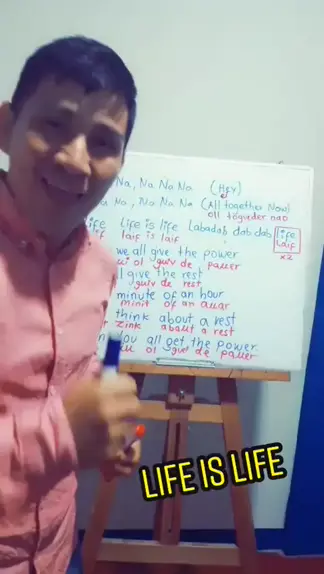 Na, Na Na Na (HEY)
Na, Na Na Na (All together Now)
oll tögueder nao
Life is life Labadab dab dab life
laif is laif laif
x2
we all give the power
ui ol guiv de pauer
give the rest
guiv de rest
minute of an hour
minit of an auar
think about a rest
zink about a rest
You all get the power
LIFE IS LIFE